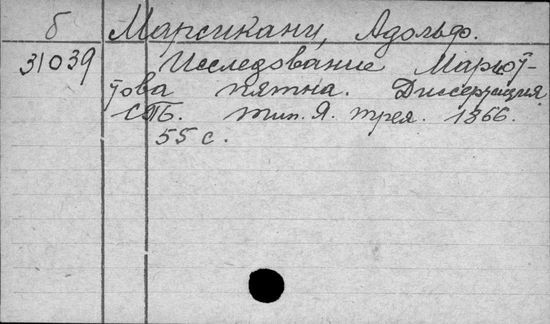 б Марсикани, Адольф.
31039 Исследование Марьот-
това пятна. Диссертация
СПБ. тип. Я. Трея. 1866.
55 с.